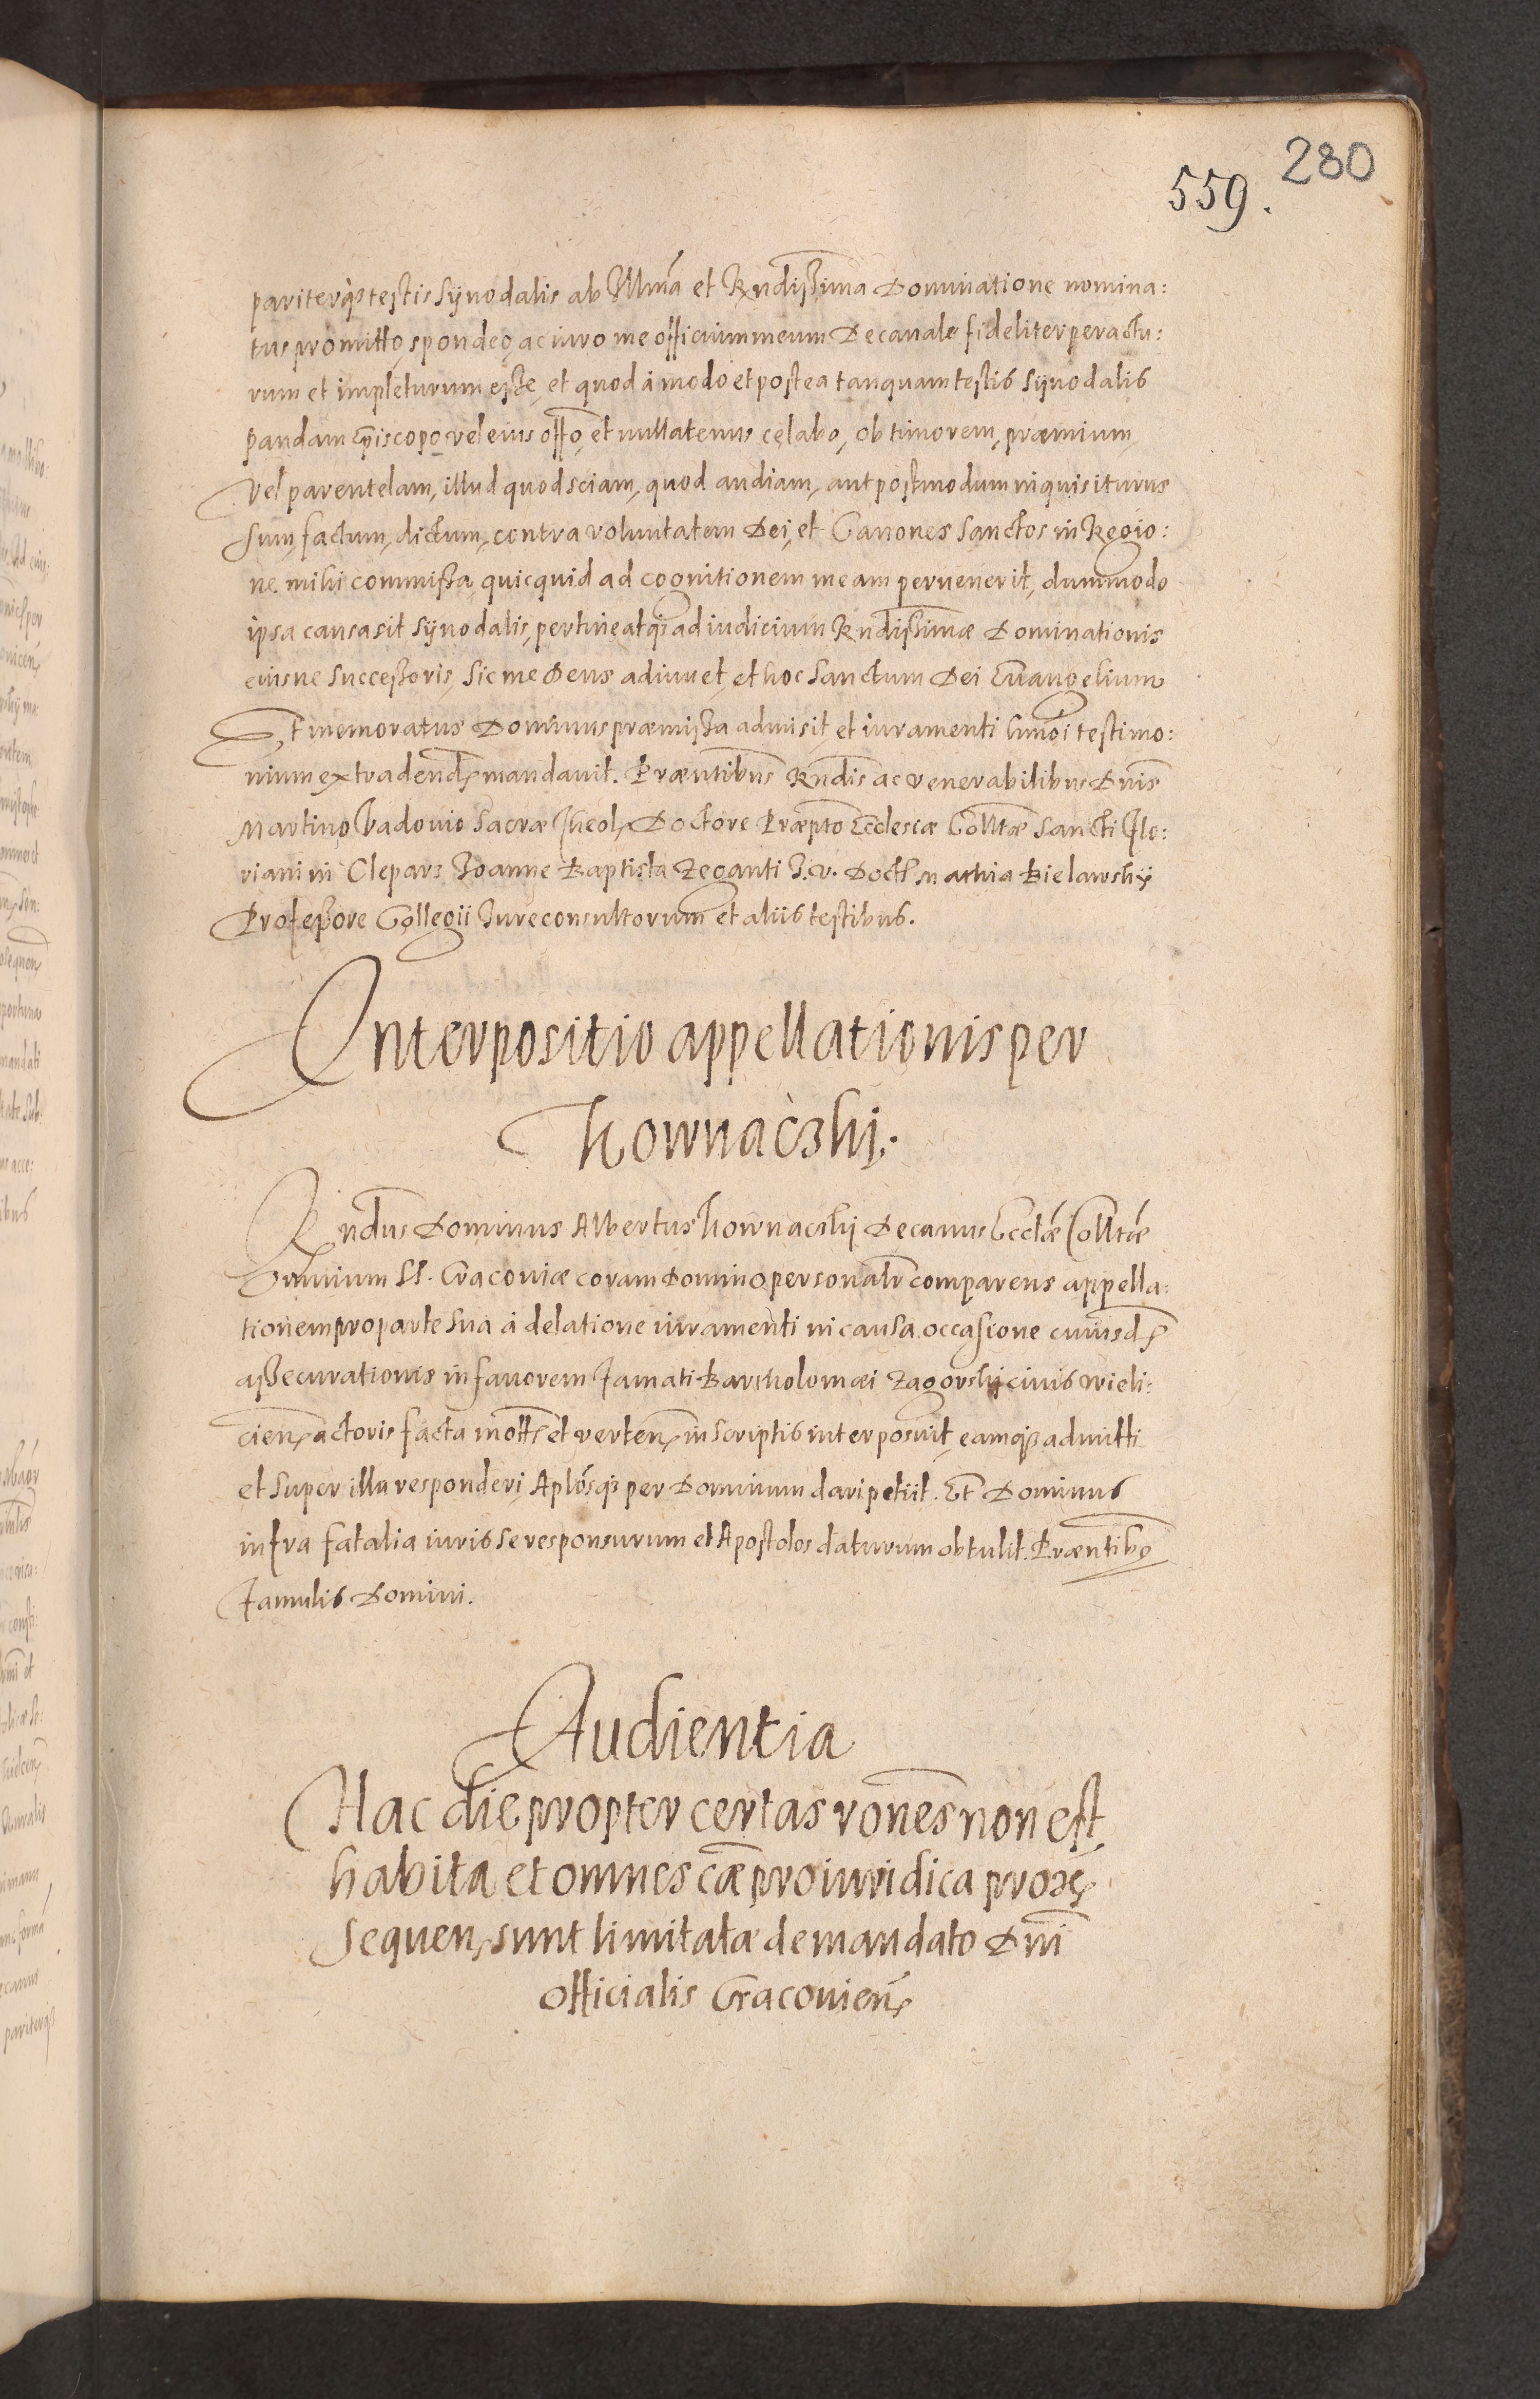 280
559.
pariterq́ʒ testis Synodalis ab Illmã et Rndissima Dominatione nomina:
tus promitto, spondeo, ac iuro me officium meum Decanale fideliter peractu:
rum et impleturum esse, et quod à modo et postea tanquam testis Synodalis
pandam Episcopo vel eius offo, et nullatenus celabo, ob timorem, præmium,
vel parentelam, illud quod sciam, quod audiam, aut postmodum inquisiturus
sum, factum, dictum, contra voluntatem Dei, et Canones Sanctos in Regio:
ne mihi commissa, quicquid ad cognitionem meam peruenerit, dummodo
ipsa causa sit Synodalis, pertineatq́ʒ ad iudicium Rndissimæ Dominationis
eiusue Successoris, Sic me Deus adiuuet, et hoc Sanctum Dei Euangelium
Et memoratus Dominus præmissa admisit, et iuramenti hmoi testimo:
nium extradend mandauit. Præntibus Rndis ac venerabilibus Dnis
Martino Vadouio Sacræ Theol. Doctore Præpto Ecclesiæ Colltæ Sancti Flo:
riani in Clepars Joanne Baptista Zeganti I. V. Doct. Mathia Bielawskÿ
Professore Collegii Jureconsultorum et aliis testibus.
Interpositio appellationis per
Kownaczkÿ.
Rndus Dominus Albertus Kownaczkÿ Decanus Eccłæ Colltæ
Omnium SS. Cracouiæ coram Domino personalr comparens appella:
tionem pro parte sua à delatione iuramenti in causa occasione cuiusd
assecurationis in fauorem Famati Bartholomæi Zagorskÿ ciuis Wieli:
cien actoris facta mott et verten in scriptis interposuit, eamq́ʒ admitti
et super illa responderi, Aplosq́ʒ per Dominum dari petiit. Et Dominus
infra fatalia iuris se responsurum et Apostolos daturum obtulit. Præntibʒ
Famulis Domini.
Audientia
Hac die propter certas rones non est
habita et omnes cæ pro iuridica prox
sequen sunt limitatæ de mandato Dni
officialis Cracouien